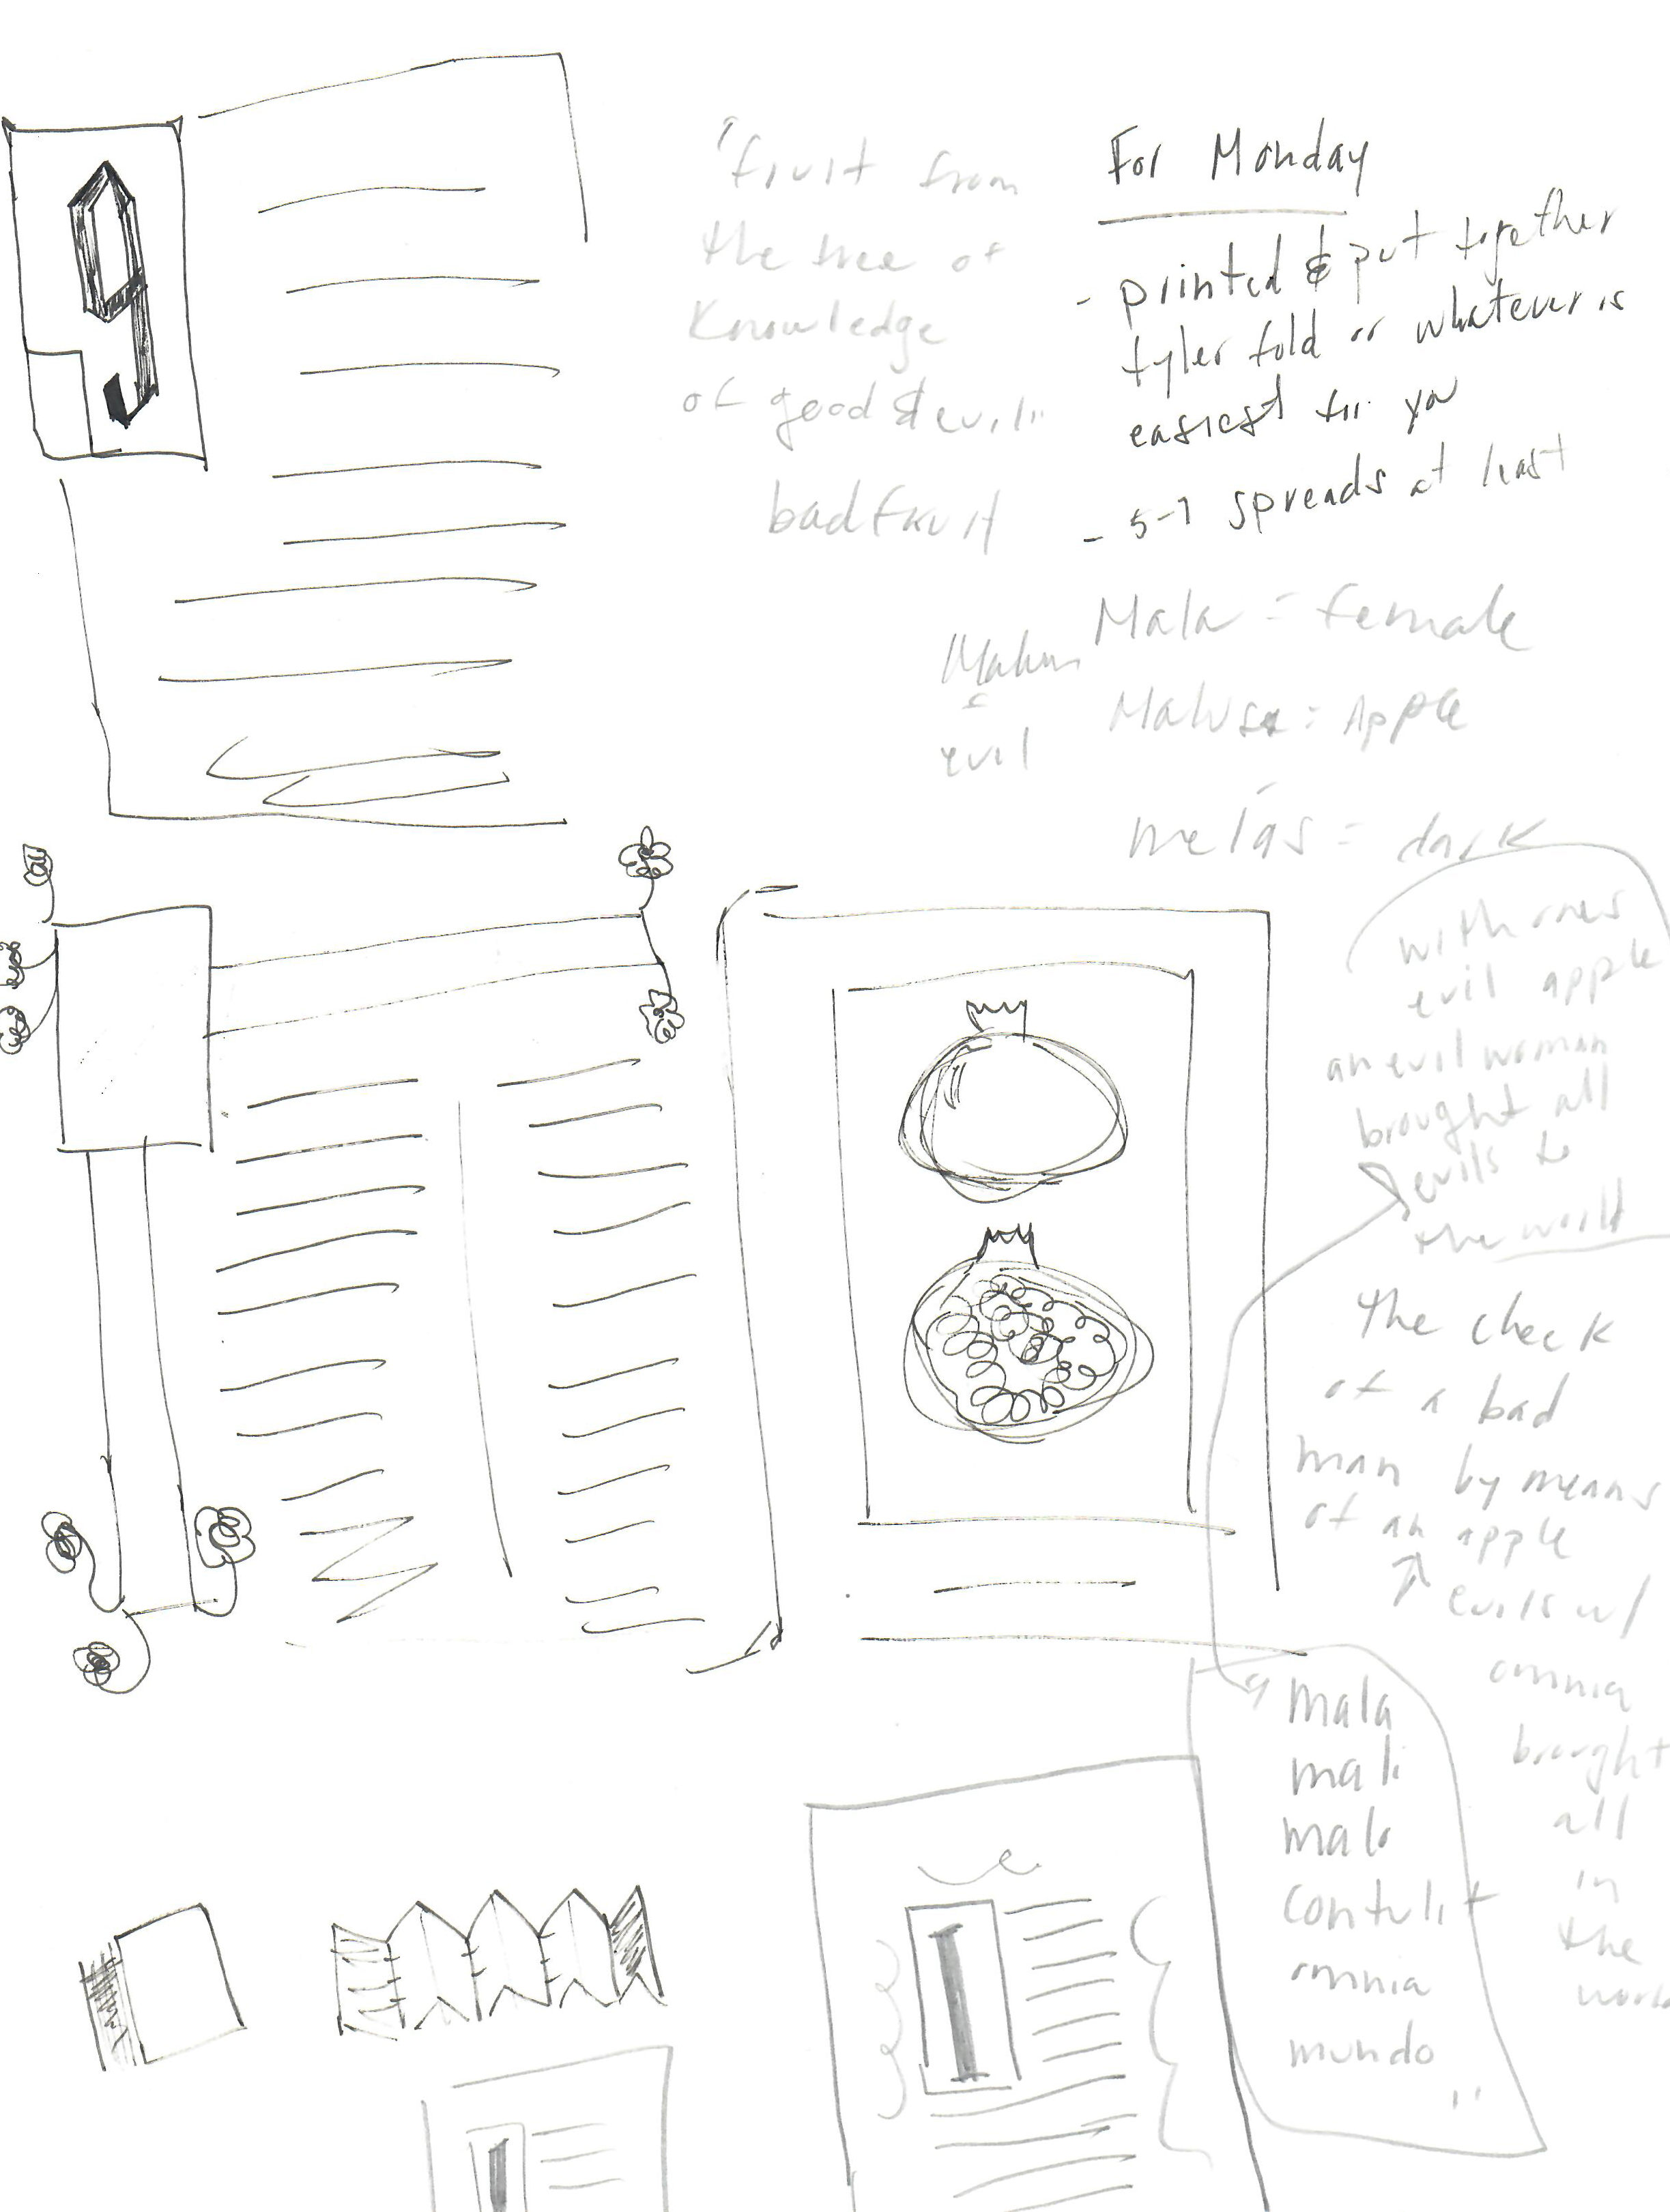 9
"fruit from
the tree of
Knowledge
of good & evil"
bad fruit
For Monday
- printed & put together
tyler fold or whatever is
easiest for you
- 5-7 spreads at least
Mala = female
Malum
=
evil
Malus = Apple
melás = dark
with ones
evil apple
an evil woman
brought all
evils to
the world
The check
of a bad
man by means
of an apple
evils w/
omnia
brought
all
in
the
world
mala
mali
malo
contulit
omnia
mundo
"
I
I